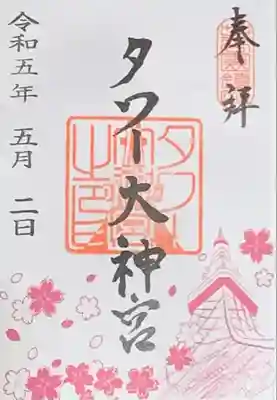 奉拝
タワー大神宮
令和五年 五月 二日